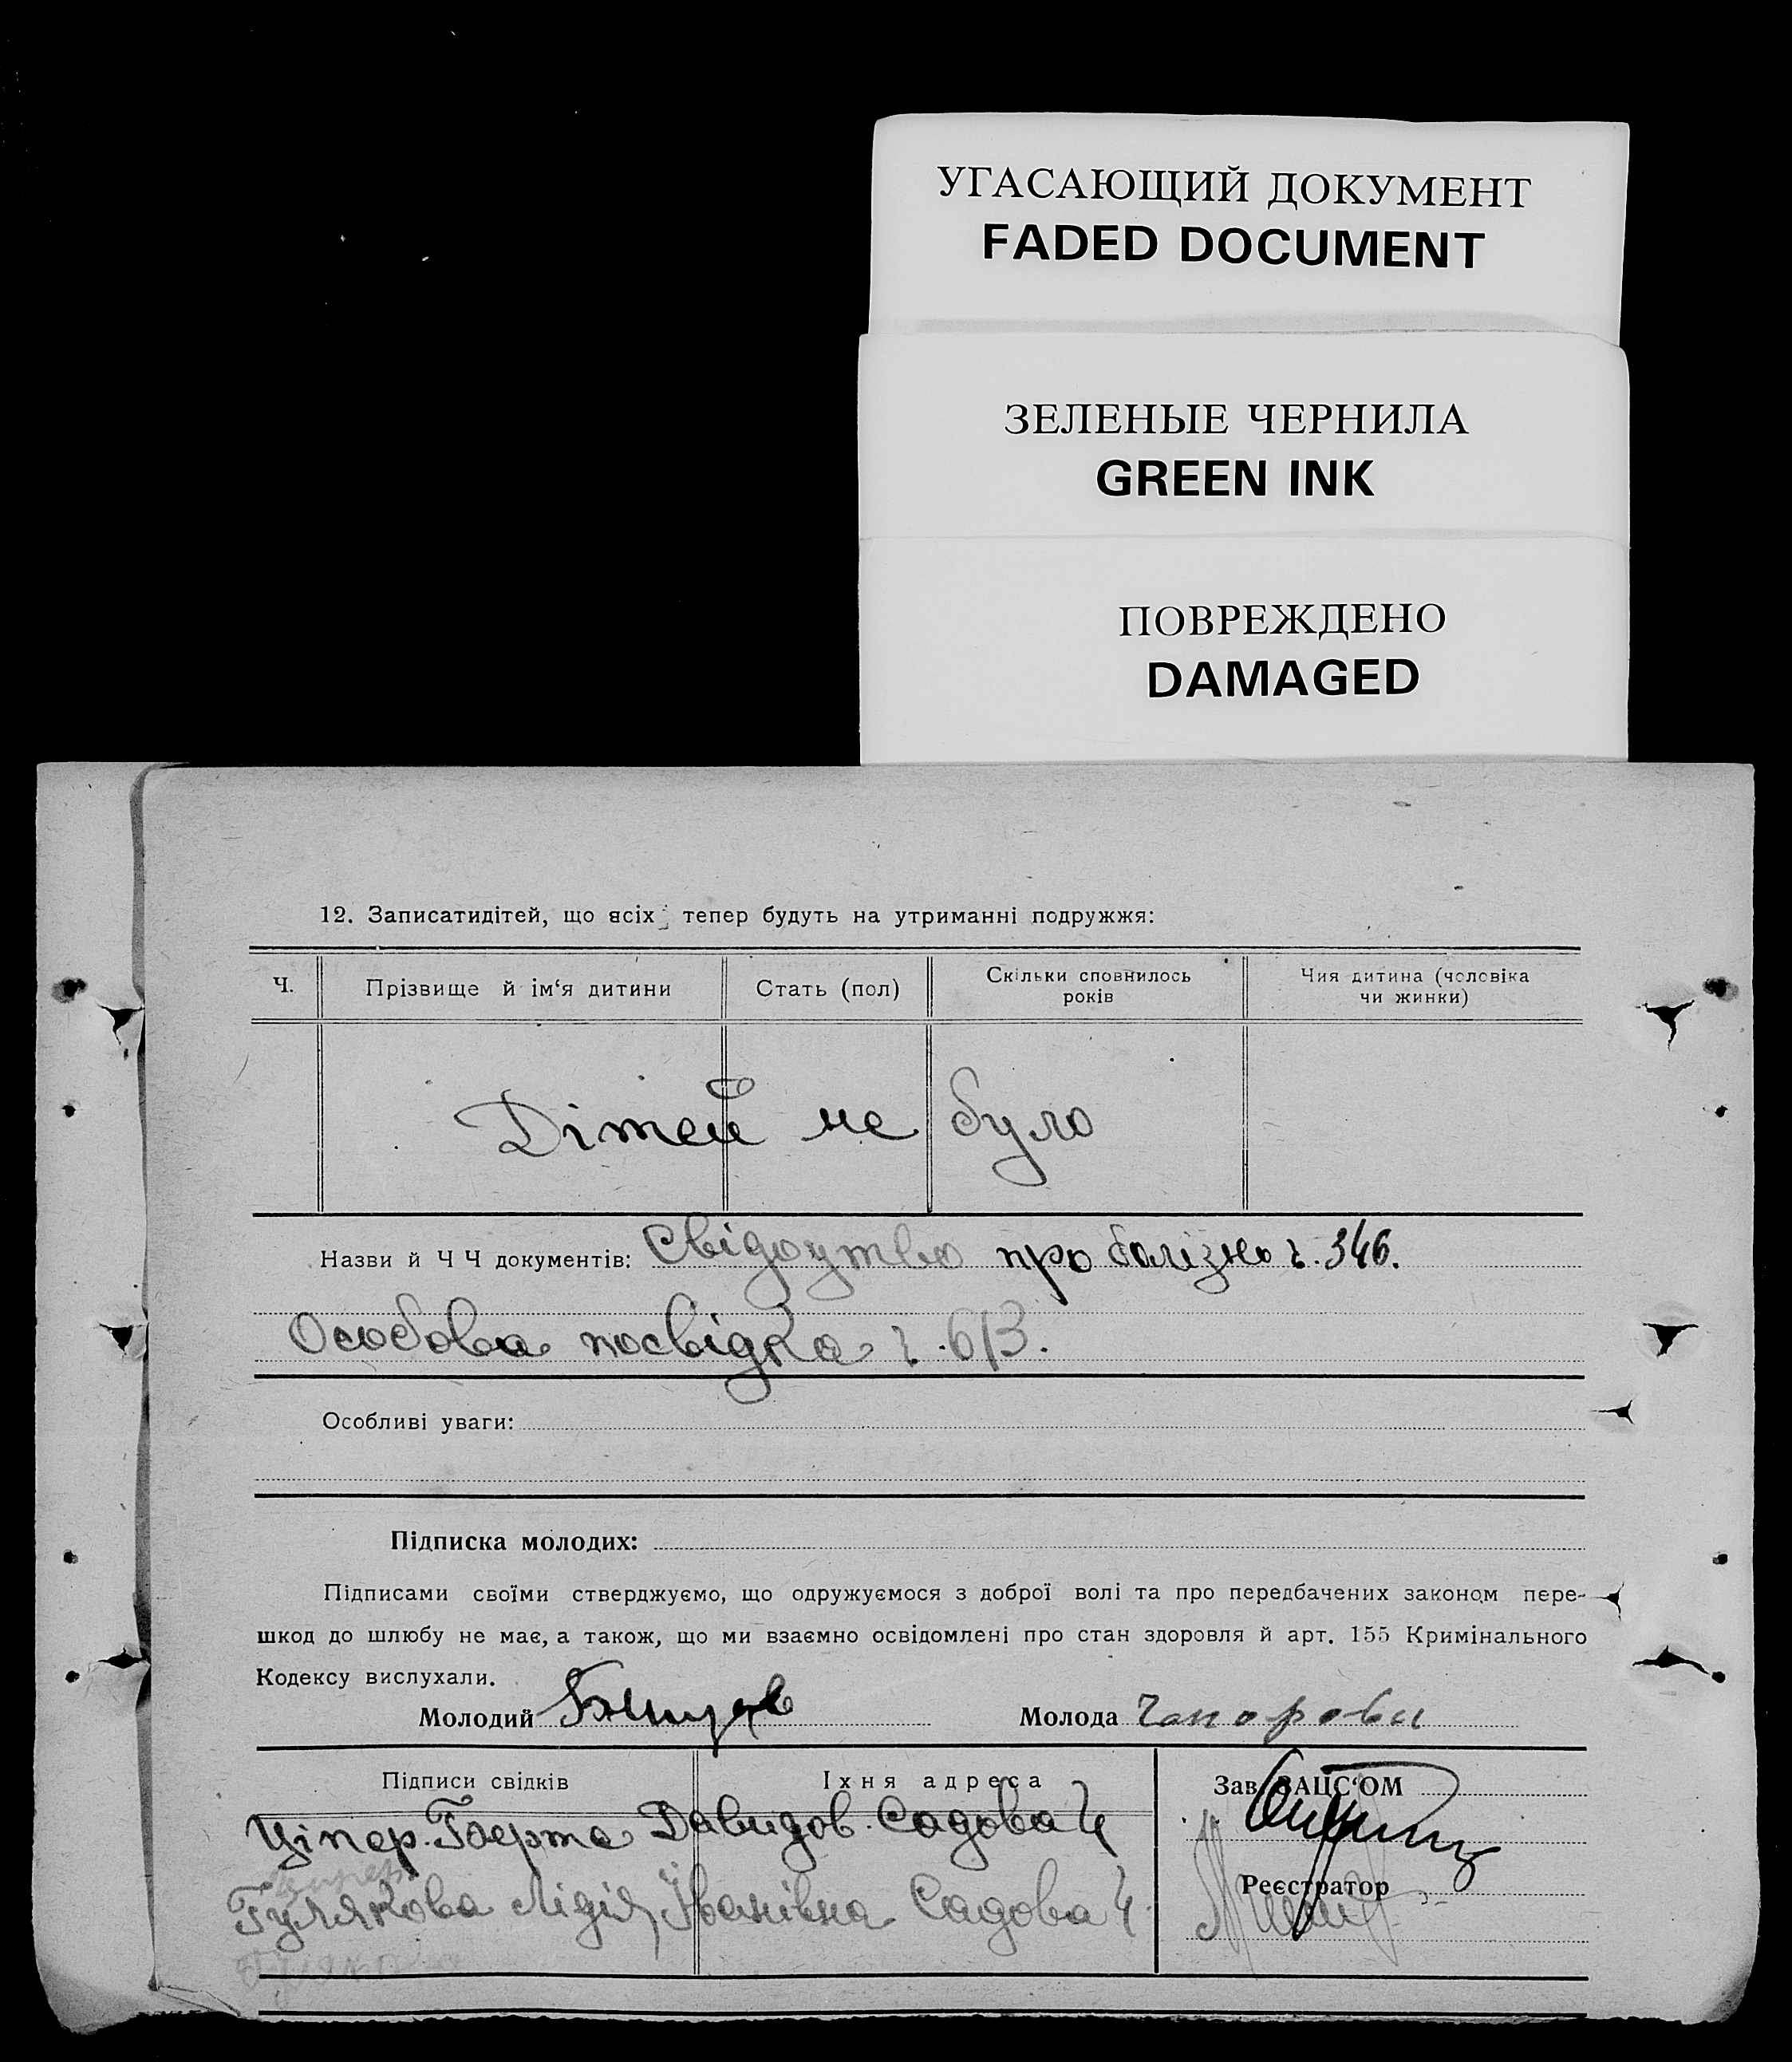 УГАСАЮЩИЙ ДОКУМЕНТ
FADED DOCUMENT
ЗЕЛЕНЫЕ ЧЕРНИЛА
GREEN INK
ПОВРЕЖДЕНО
DAMAGED
12. Записатидітей, що всіх тепер будуть на утриманні подружжя:
Ч. Прізвище й ім‘я дитини Стать (пол) Скільки сповнилось років Чия дитина (чоловіка чи жинки)
Дітей не було
Назви й Ч Ч документів: Свідоцтво про ч. 346.
Особова посвідка ч. 613.
Особливі уваги:
Підписка молодих:
Підписами своїми стверджуємо, що одружуємося з доброї волі та про передбачених законом пере-
шкод до шлюбу не має, а також, що ми взаємно освідомлені про стан здоровля й арт. 155 Кримінального
Кодексу вислухали.
Молодий Молода
Підписи свідків Їхня адреса Зав. ЗАЦС‘ОМ
Ціпер Давидов. Садова 4
Реєстратор
Гулякова Лідія Іванівна Садова 4